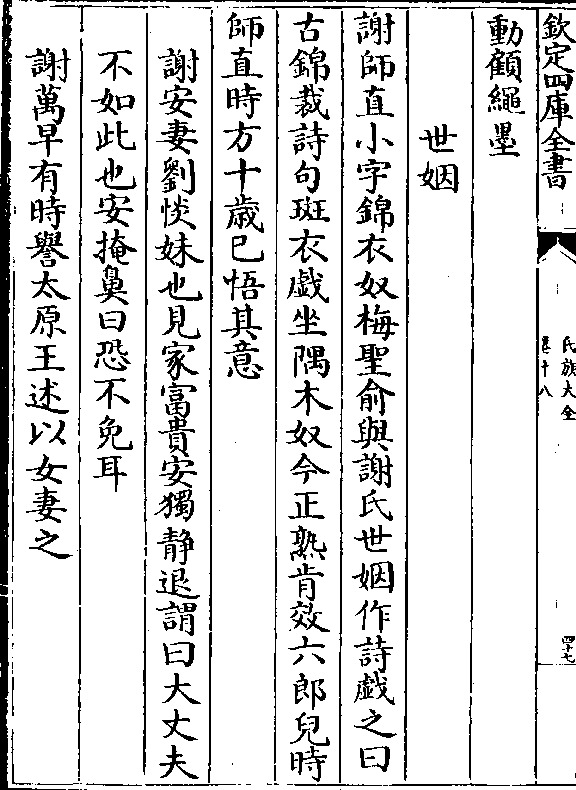 欽定四庫全書
氏族大全
卷十八
四十七
動顧繩墨
世姻
謝師直小字錦衣奴梅聖俞與謝氏世姻作詩戲之曰
古錦裁詩句斑衣戲坐隅木奴今正熟肯效六郎兒時
師直時方十歲已悟其意
謝安妻劉惔妹也見家富貴安獨静退謂曰大丈夫
不如此也安掩鼻曰恐不免耳
謝萬早有時譽太原王述以女妻之